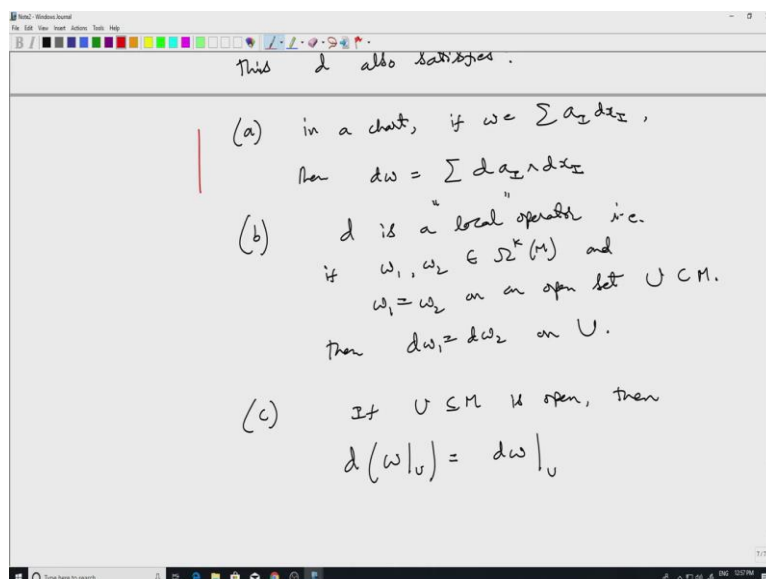 Note2 - Windows Journal
File Edit View Insert Actions Tools Help
This d also satisfies.
(a) in a chart, if ω = ∑ a_I dx_I,
then dω = ∑ d a_I ∧ dx_I
(b) d is a "local" operator i.e.
if ω_1, ω_2 ∈ Ω^k (M) and
ω_1 = ω_2 on an open set U ⊂ M.
then dω_1 = dω_2 on U.
(c) If U ⊆ M is open, then
d (ω|_U) = dω|_U
7/7
Type here to search
ENG 12:57 PM